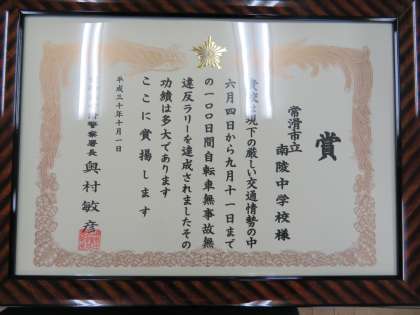 賞
常滑市立
南陵中学校様
貴校は現下の厳しい交通情勢の中
六月四日から九月十一日まで
の一〇〇日間自転車無事故無
違反ラリーを達成されましたその
功績は多大であります
ここに賞揚します
平成三十年十月一日
警察署長 奥村敏彦